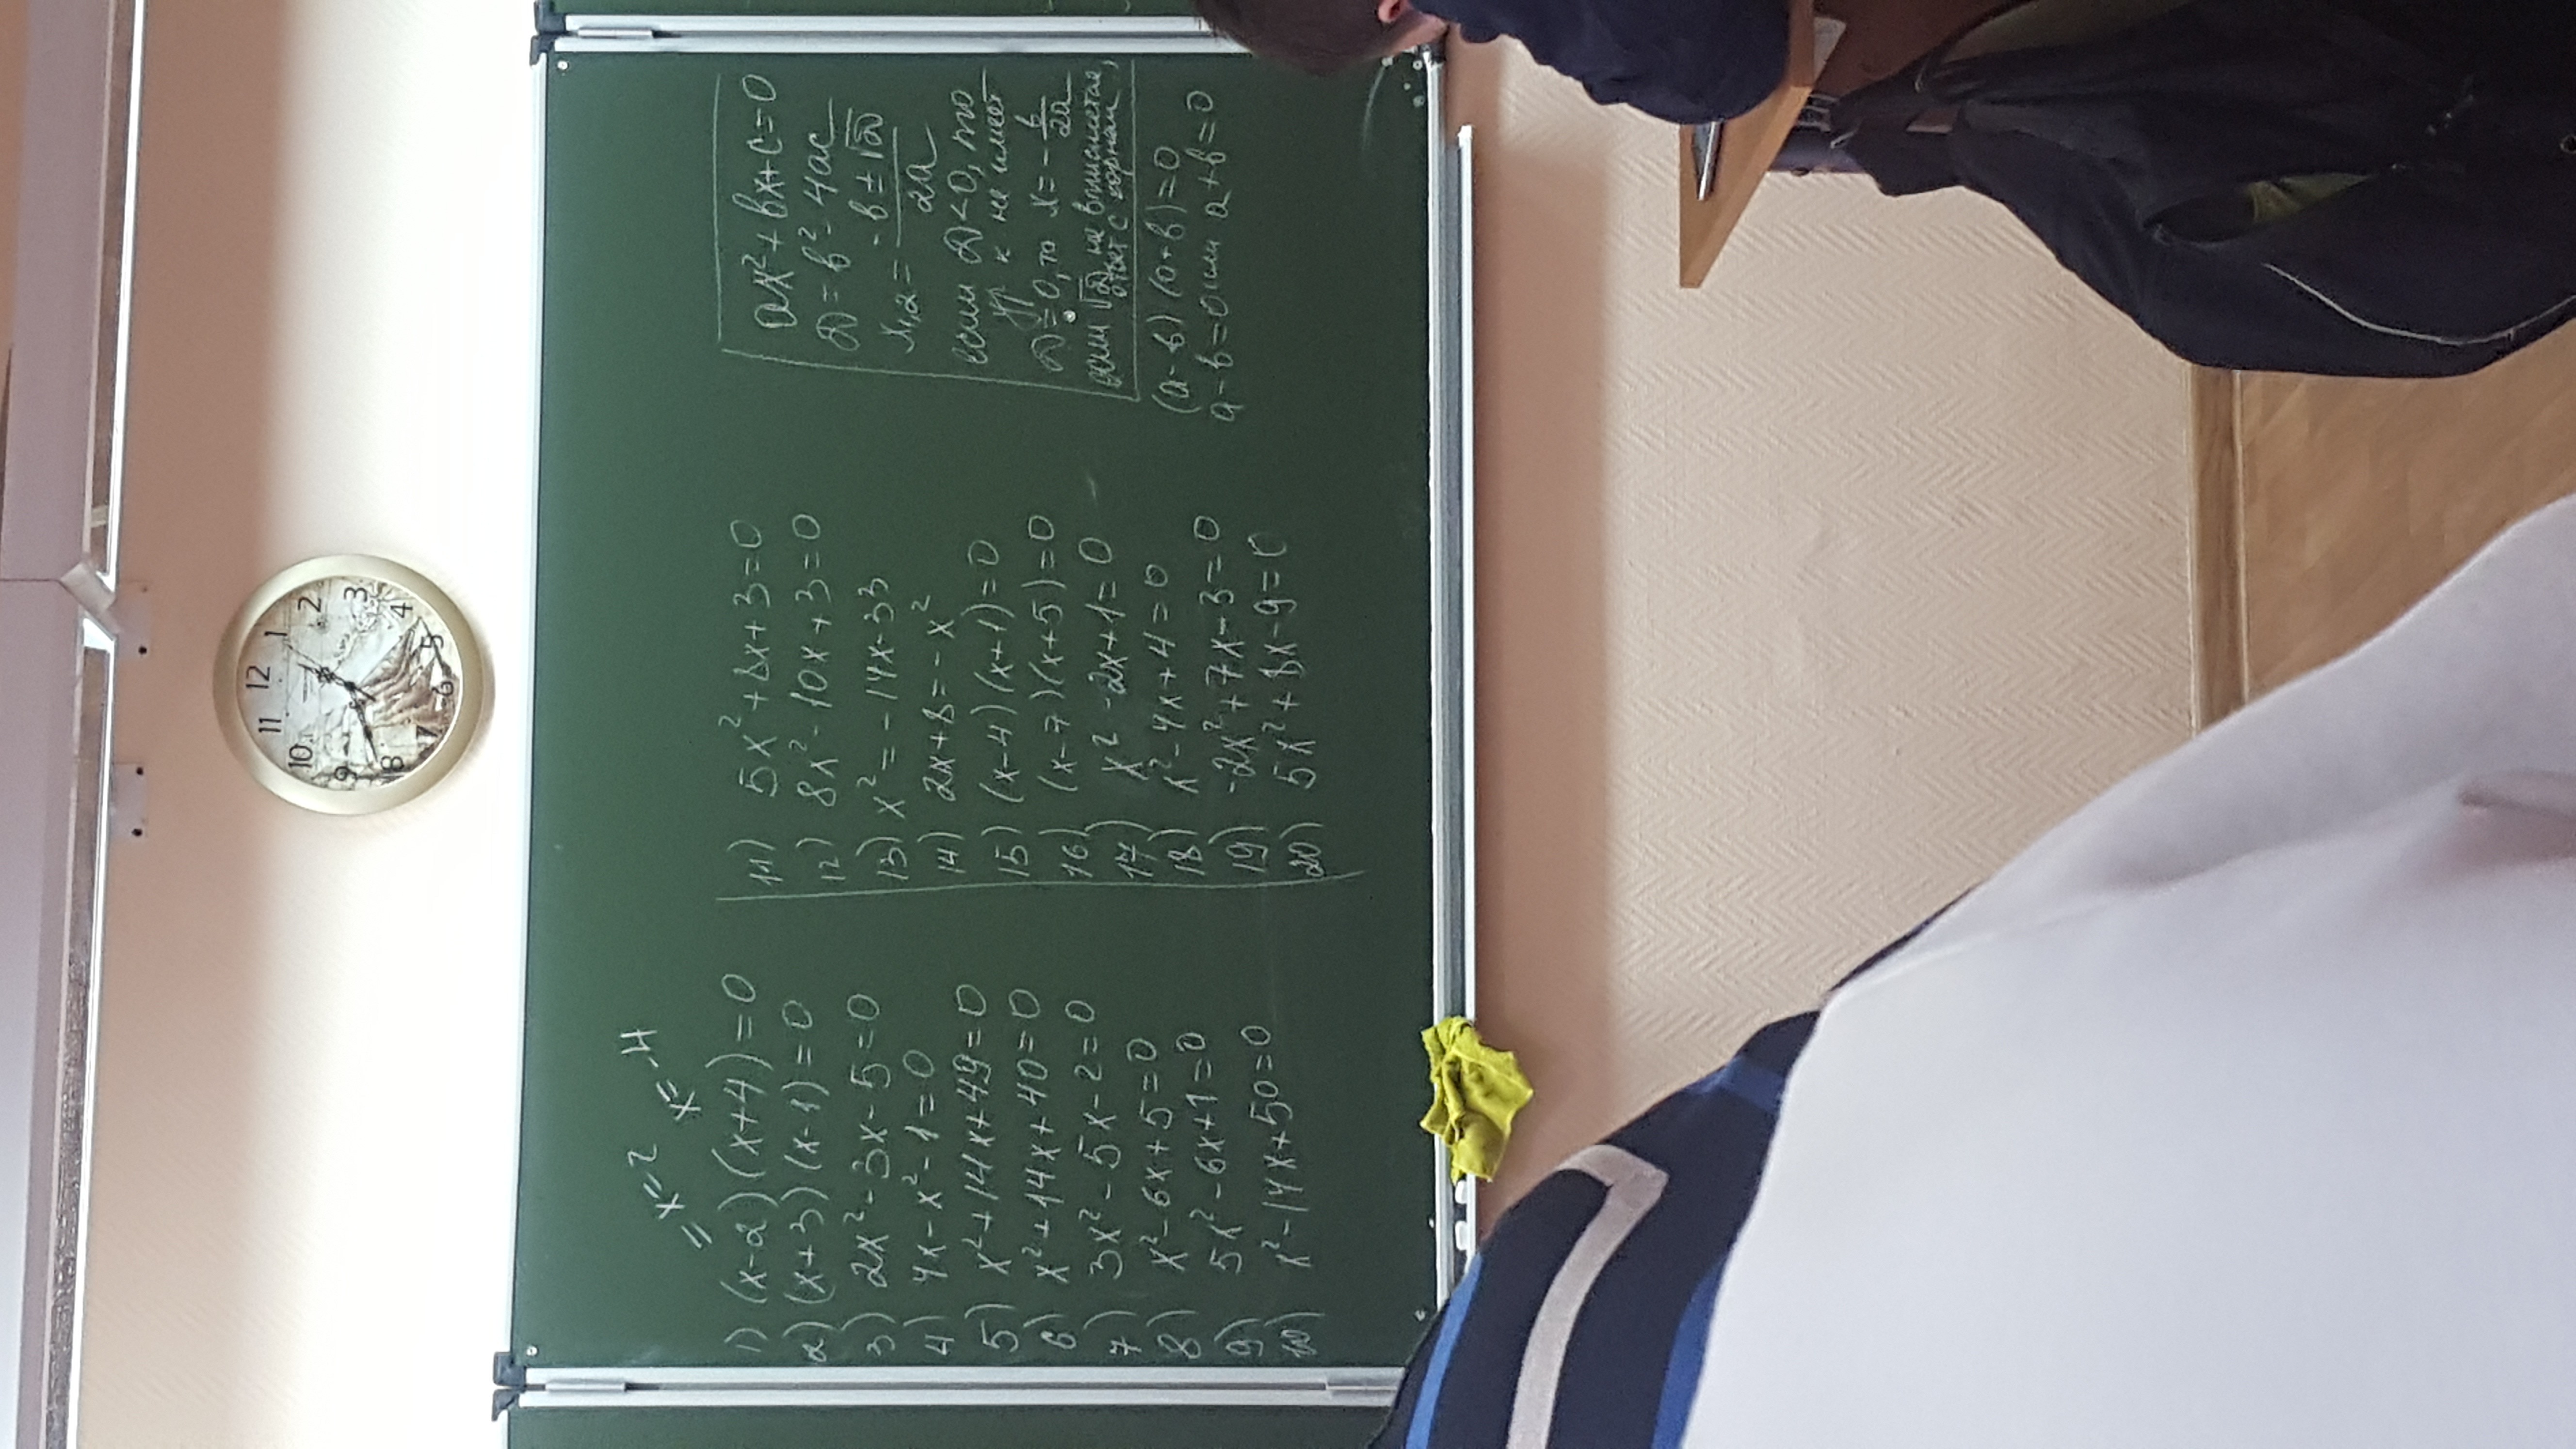 12
1
2
3
4
5
6
7
8
9
10
11
= x=2 x=-4
1) (x-2)(x+4)=0
2) (x+3)(x-1)=0
3) 2x²-3x-5=0
4) 4x-x²-1=0
5) x²+14x+49=0
6) x²+14x+40=0
7) 3x²-5x-2=0
8) x²-6x+5=0
9) 5x²-6x+1=0
10) x²-14x+50=0
11) 5x²+8x+3=0
12) 8x²-10x+3=0
13) x²=-14x-33
14) 2x+8=-x²
15) (x-4)(x+1)=0
16) (x-7)(x+5)=0
17) x²-2x+1=0
18) x²-4x+4=0
19) -2x²+7x-3=0
20) 5x²+8x-9=0
ax²+bx+c=0
D=b²-4ac
x₁,₂=(-b±√D)/2a
если D<0, то
ур к не имеет
D=0, то x=-b/2a
если √D не вычисляется,
ответ с корнем
(a-b)(a+b)=0
a-b=0 или a+b=0